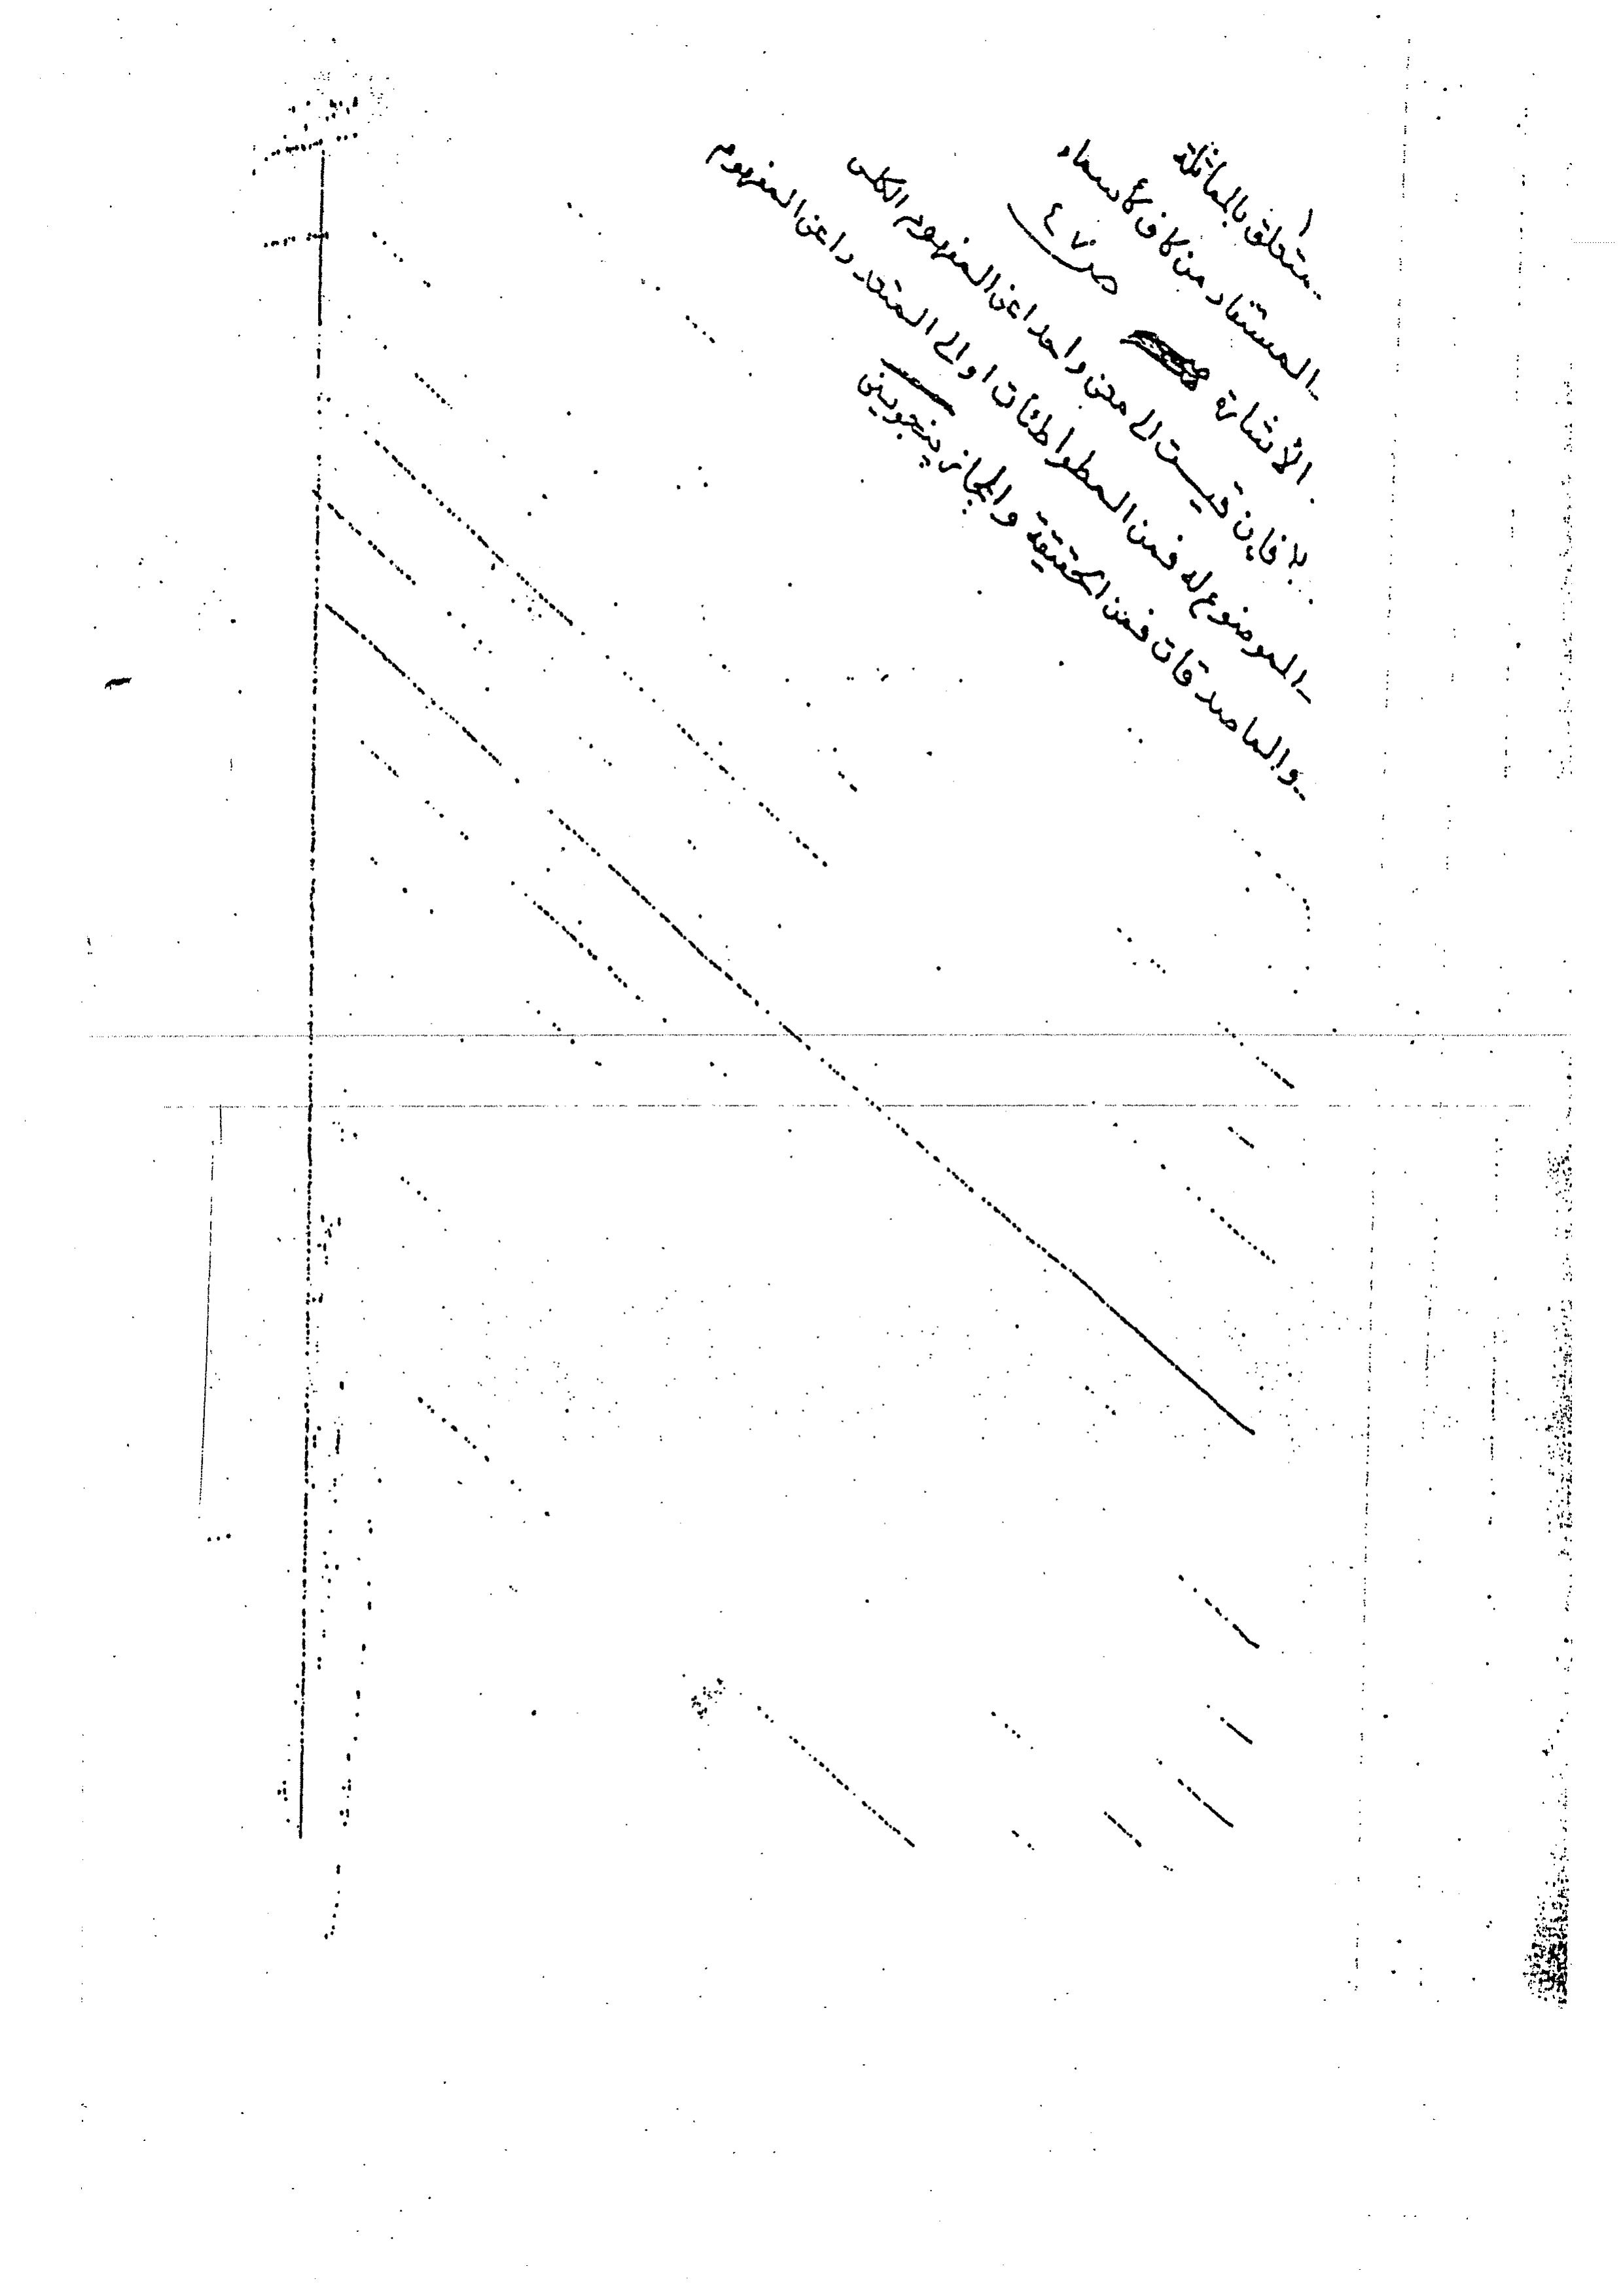 ١
متعلق بالمماثلة
المستفاد من كاف كأسماء
الأشارة ص ٤٧
بل فإن قيست الى معنى واحد اعنى المفهوم الكلى
الموضوع له فمن المطواطئات او الى المتعدد اعنى المفهوم
والماصدقات فمن الحقيقة والمجاز ينجوينى